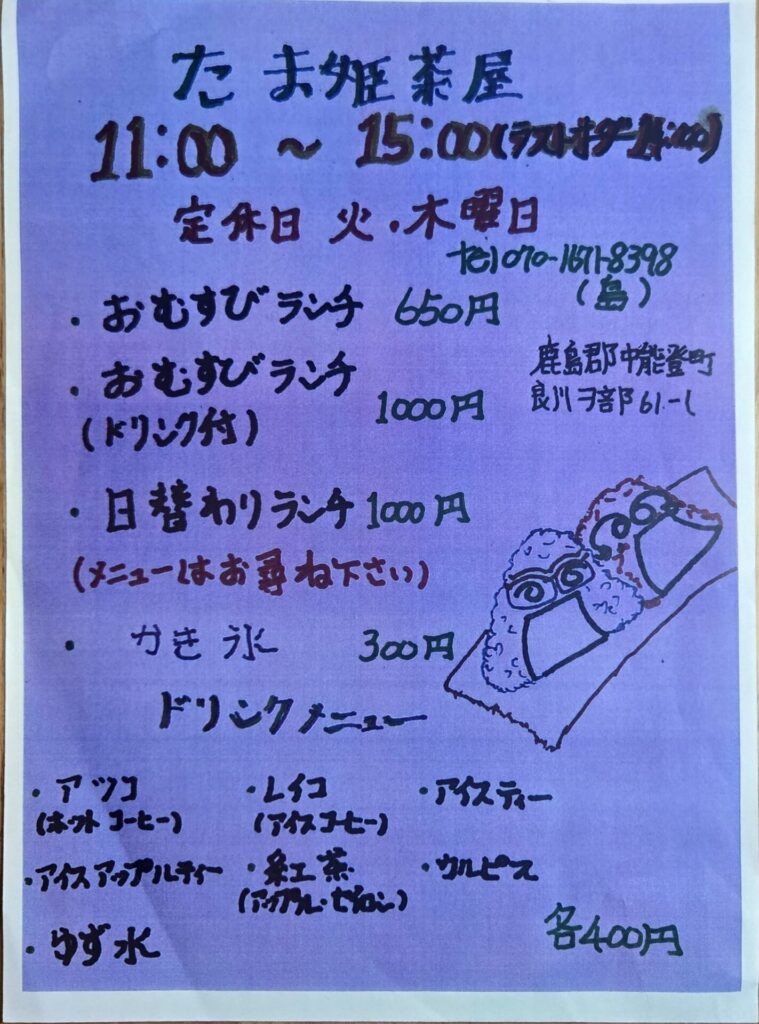 たま姫茶屋
11:00 ~ 15:00(ラストオーダー14:00)
定休日 火・木曜日
tel 070-1671-8398
(島)
・おむすびランチ 650円
・おむすびランチ
(ドリンク付) 1000円
鹿島郡中能登町
良川ヲ部61-1
・日替わりランチ 1000円
(メニューはお尋ね下さい)
・かき氷 300円
ドリンクメニュー
・アツコ ・レイコ ・アイスティー
(ホットコーヒー) (アイスコーヒー)
・アイスアップルティー ・紅茶 ・カルピス
(アップル・セイロン)
・ゆず水 各400円